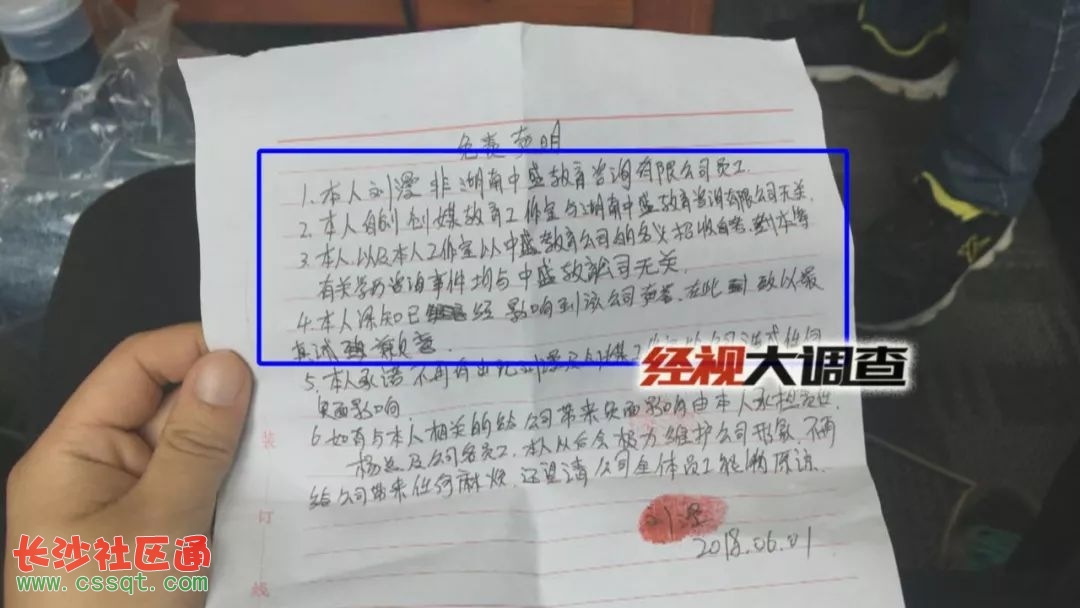 免责声明
1.本人刘漫非湖南中盛教育咨询有限公司员工.
2.本人自创创媒教育工作室与湖南中盛教育咨询有限公司无关.
3.本人以及本人工作室以中盛教育公司的名义招收自考、专本等
有关学历咨询事件均与中盛教育公司无关.
4.本人深知已经影响到该公司声誉.在此致以最
真诚歉意.
5.本人承诺不再有由
负面影响.
6.如有与本人相关的给公司带来负面影响由本人承担责任.
杨总及公司各员工.本人从今会极力维护公司形象.不再
给公司带来任何麻烦.还望请公司全体员工能够原谅.
刘漫
2018.06.01
装
订
线
经视大调查
长沙社区通
www.cssqt.com